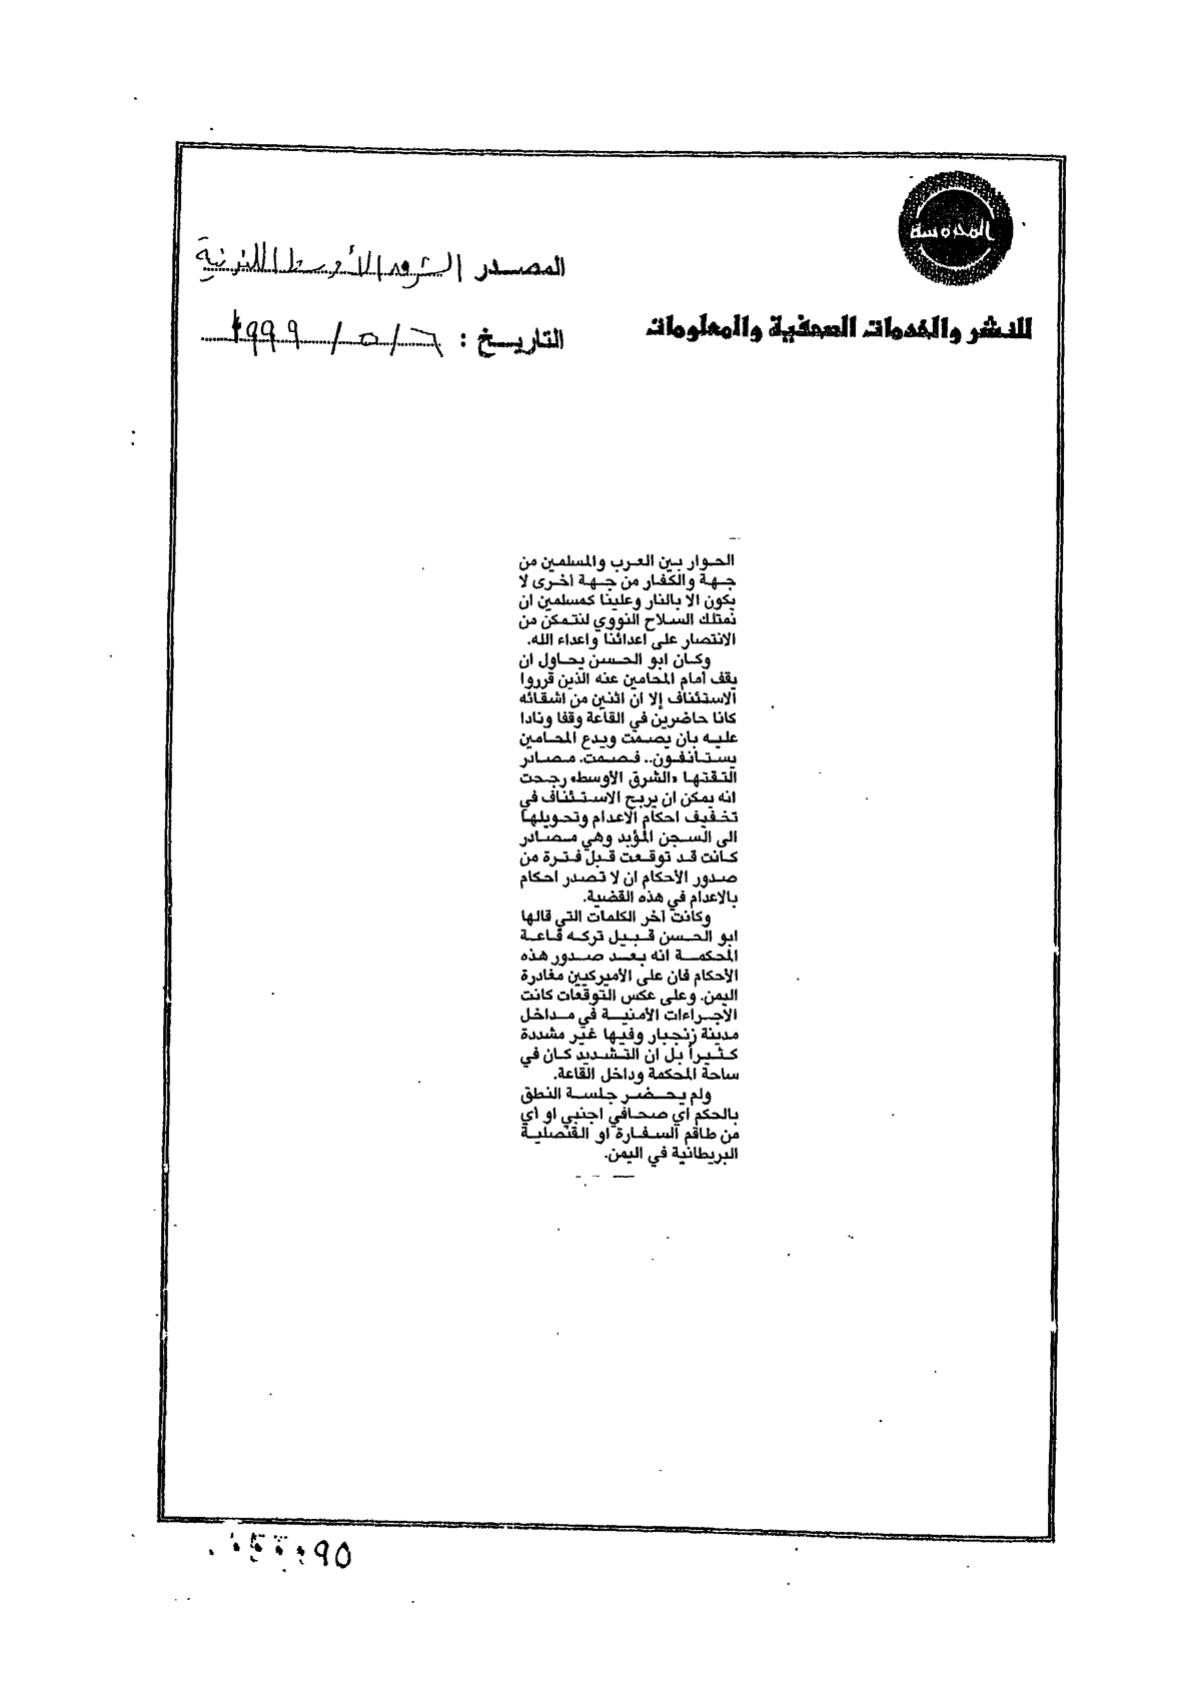 المحروسة
للنشر والخدمات الصحفية والمعلومات
المصدر الشرق الأوسط اللندنية
التاريخ : ٦/٥/١٩٩٩
الحوار بين العرب والمسلمين من
جهة والكفار من جهة اخرى لا
يكون الا بالنار وعلينا كمسلمين ان
نمتلك السلاح النووي لنتمكن من
الانتصار على اعدائنا واعداء الله.
وكان ابو الحسن يحاول ان
يقف أمام المحامين عنه الذين قرروا
الاستئناف إلا ان اثنين من اشقائه
كانا حاضرين في القاعة وقفا ونادا
عليه بان يصمت ويدع المحامين
يستانفون.. فصمت. مصادر
التقتها «الشرق الأوسط» رجحت
انه يمكن ان يربح الاستئناف في
تخفيف احكام الاعدام وتحويلها
الى السجن المؤبد وهي مصادر
كانت قد توقعت قبل فترة من
صدور الأحكام ان لا تصدر احكام
بالاعدام في هذه القضية.
وكانت آخر الكلمات التي قالها
ابو الحسن قبيل تركه قاعة
المحكمة انه بعد صدور هذه
الأحكام فان على الأميركيين مغادرة
اليمن. وعلى عكس التوقعات كانت
الأجراءات الأمنية في مداخل
مدينة زنجبار وفيها غير مشددة
كثيراً بل ان التشديد كان في
ساحة المحكمة وداخل القاعة.
ولم يحضر جلسة النطق
بالحكم أي صحافي اجنبي او أي
من طاقم السفارة او القنصلية
البريطانية في اليمن.